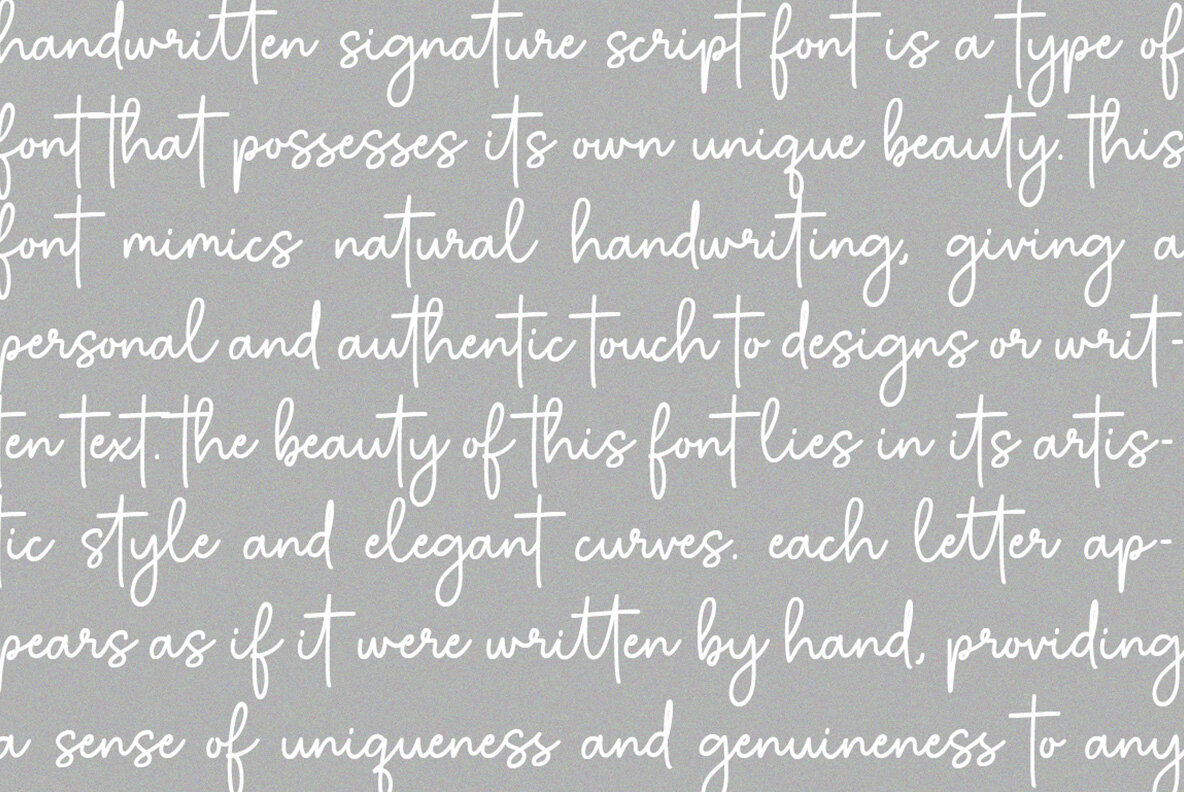 handwritten signature script font is a type of
font that possesses its own unique beauty. this
font mimics natural handwriting, giving a
personal and authentic touch to designs or writ-
ten text. the beauty of this font lies in its artis-
tic style and elegant curves. each letter ap-
pears as if it were written by hand, providing
a sense of uniqueness and genuineness to any